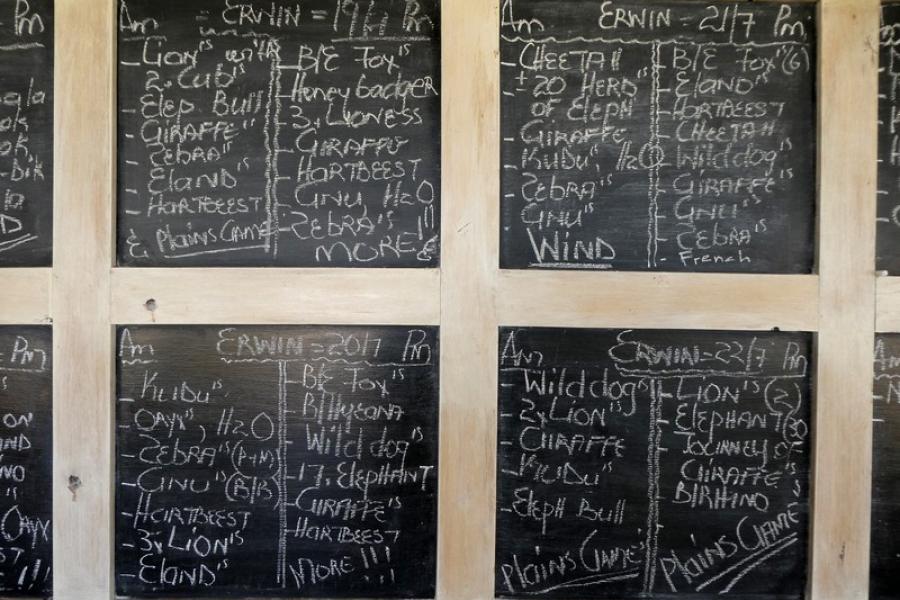 Pm
Am = ERWIN = 19/7 Pm
- Lion's with
2. Cub's
- Elep Bull
- GIRAFFE's
- ZEBRA's
- Eland
- HARTBEEST
& Plains GAME
- B/E Fox's
- Honey badger
- 3x Lioness
- GIRAFFE
- HARTBEEST
- GNU, H2O
- ZEBRA'S !!!
MORE
Am ERWIN - 21/7 Pm
- CHEETAH
± 20 HERD
OF ELEPH
- GIRAFFE
- KUDU's H2O
- ZEBRA's
- GNU's
WIND
- B/E Fox's (6)
- ELAND's
- HARTBEEST
- CHEETAH
- Wild dog's
- GIRAFFE's
- GNU's
- ZEBRA's
- French
Pm
Am ERWIN = 20/7 Pm
- KUDU's
- ORYX's, H2O
- ZEBRA's (P+M)
- GNU's (B/B)
- HARTBEEST
- 3x LION's
- ELAND's
- B/E Fox's
- Wild dog's
- 17x ELEPHANT
- GIRAFFE's
- HARTBEEST
MORE !!!
Am ERWIN = 22/7 Pm
- Wild dog's
- 2x LION's
- GIRAFFE
- KUDU's
- Eleph Bull
Plain's GAME's
- LION's (2)
- ELEPHANT
- JOURNEY OF
GIRAFFE's
- B/RHINO
Plains GAME